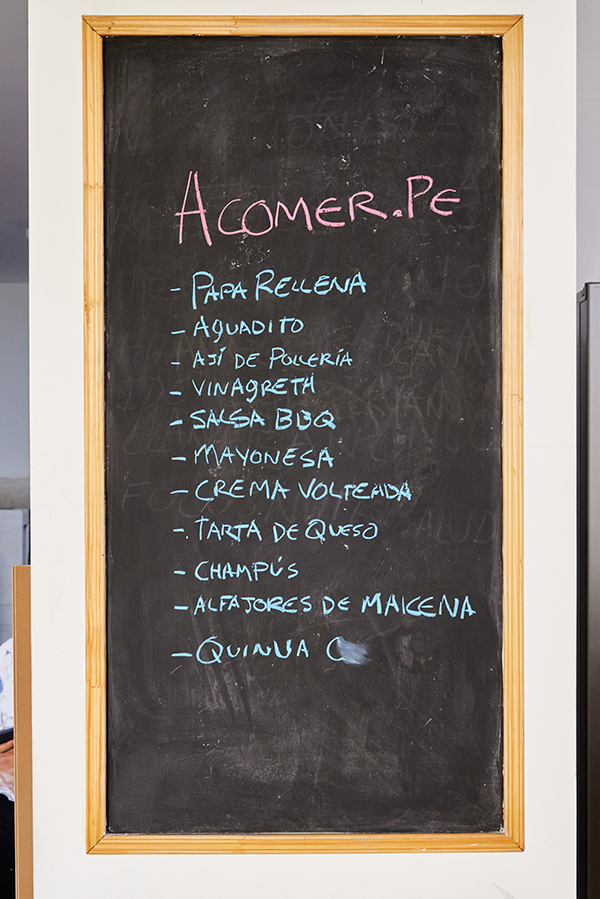 ACOMER.PE
- PAPA RELLENA
- AGUADITO
- AJÍ DE POLLERÍA
- VINAGRETH
- SALSA BBQ
- MAYONESA
- CREMA VOLTEADA
- TARTA DE QUESO
- CHAMPÚS
- ALFAJORES DE MAICENA
- QUINUA